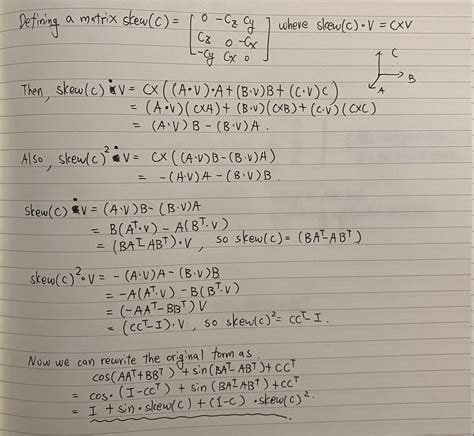 Defining a matrix skew(C) = [ 0 -Cz Cy where skew(C)·V = C×V
Cz 0 -Cx
-Cy Cx 0 ]
C
B
A
Then, skew(C)·V = C×((A·V)·A+(B·V)B+(C·V)C)
= (A·V)(C×A)+(B·V)(C×B)+(C·V)(C×C)
= (A·V)B-(B·V)A.
Also, skew(C)²·V = C×((A·V)B-(B·V)A)
= -(A·V)A-(B·V)B.
skew(C)·V = (A·V)B-(B·V)A
= B(Aᵀ·V)-A(Bᵀ·V)
= (BAᵀ-ABᵀ)·V, so skew(C)=(BAᵀ-ABᵀ)
skew(C)²·V = -(A·V)A-(B·V)B
= -A(Aᵀ·V)-B(Bᵀ·V)
= (-AAᵀ-BBᵀ)V
= (CCᵀ-I)·V, so skew(C)²=CCᵀ-I.
Now we can rewrite the original form as.
cos(AAᵀ+BBᵀ)+sin(BAᵀ-ABᵀ)+CCᵀ
= cos·(I-CCᵀ)+sin(BAᵀ-ABᵀ)+CCᵀ
= I+sin·skew(C)+(1-C)·skew(C)².